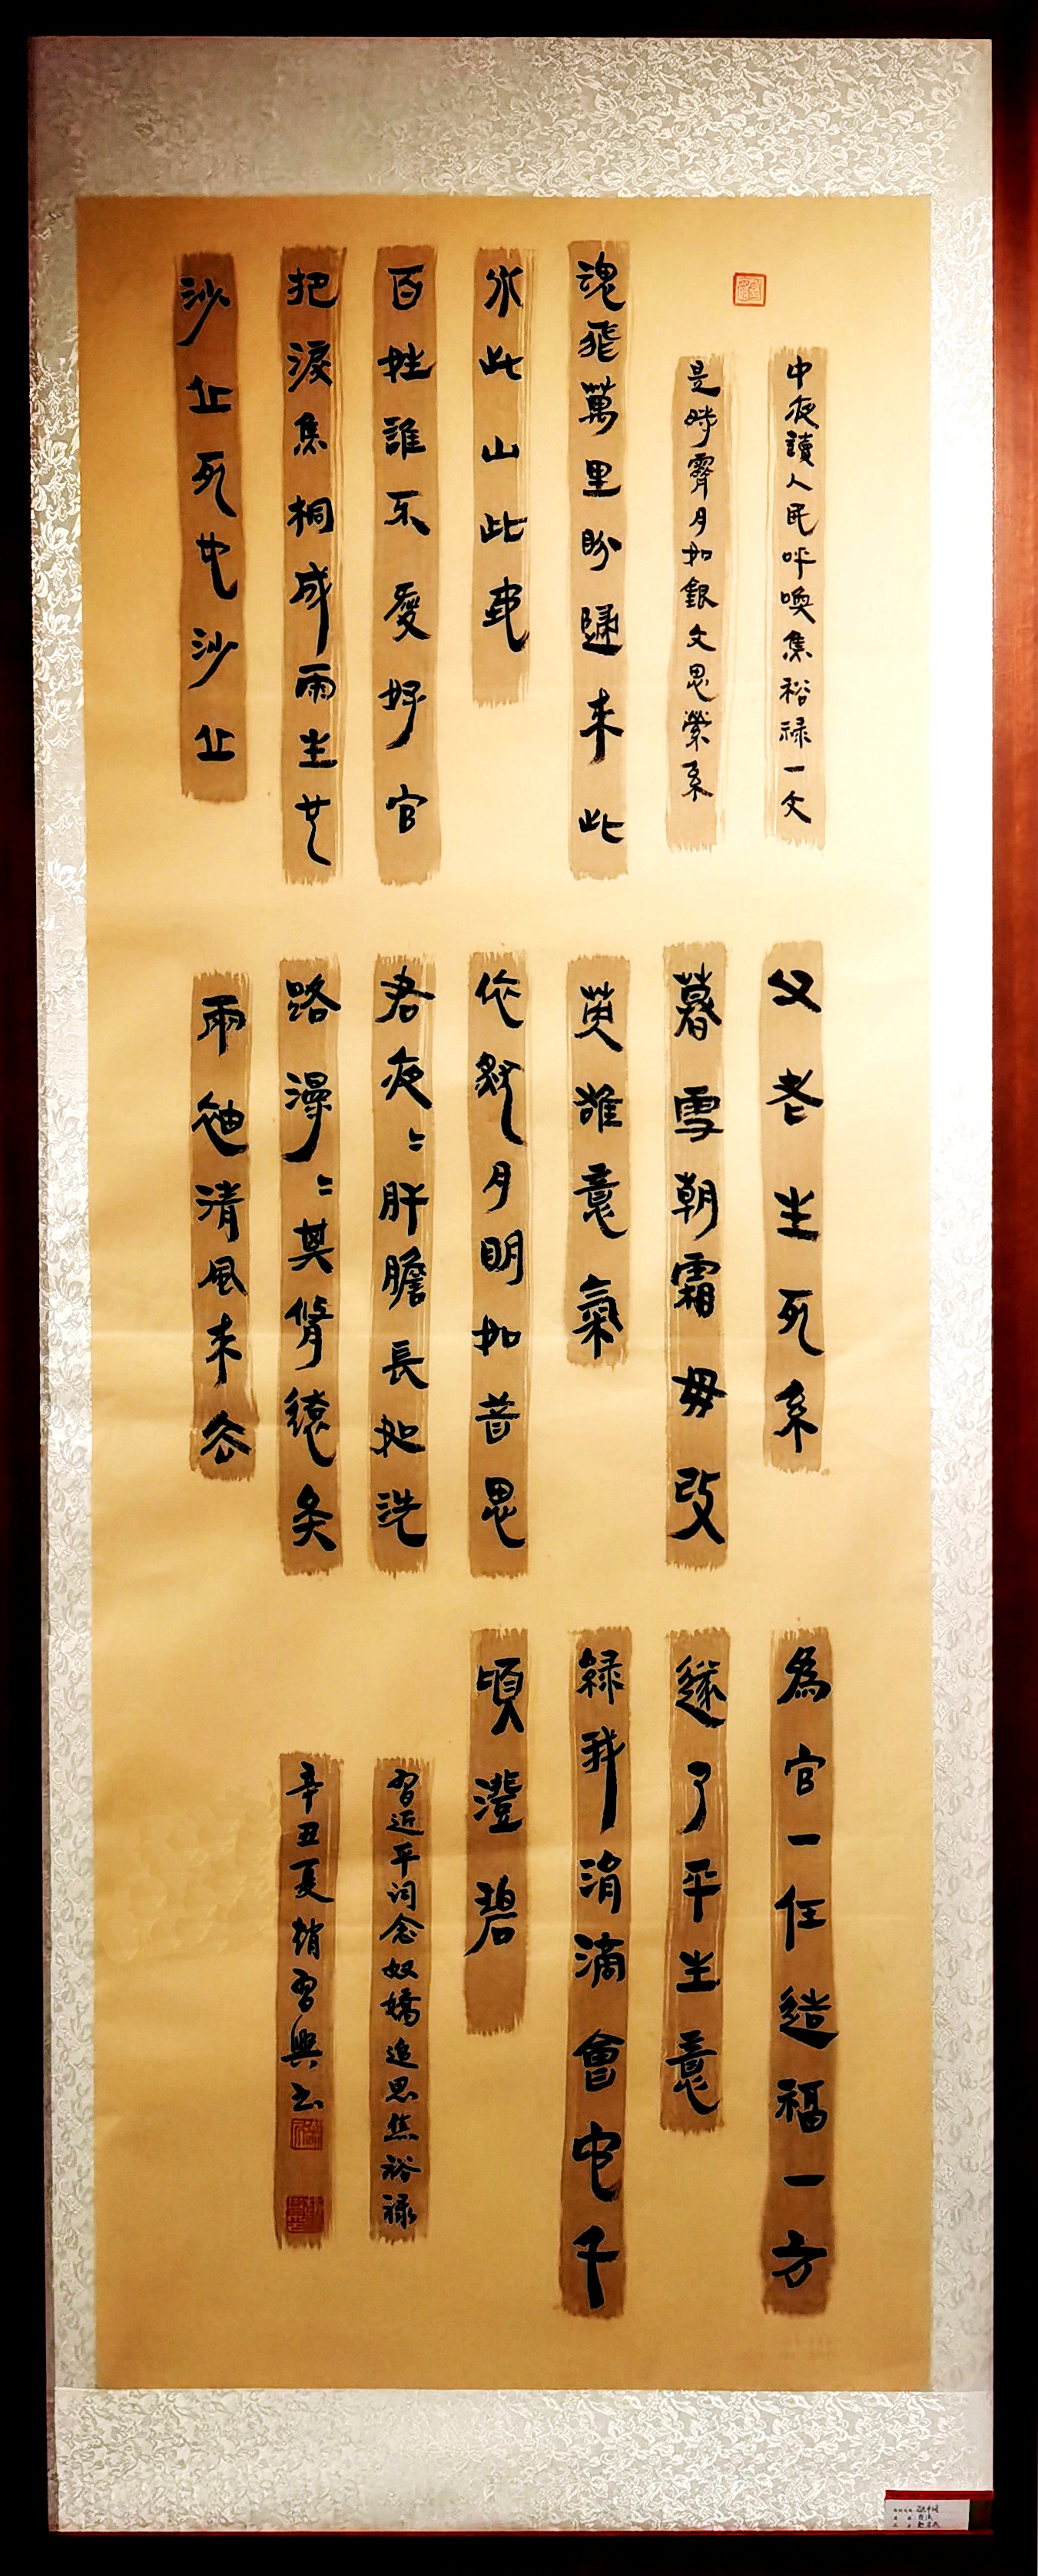 中夜讀人民呼喚焦裕禄一文
是時霽月如銀文思縈系
魂飛萬里盼歸来此
水此山此地
百姓誰不愛好官
把淚焦桐成雨生也
沙丘死也沙丘
父老生死系
暮雪朝霜毋改
英雄意氣
依然月明如昔思
君夜〻肝膽長如洗
路漫〻其脩遠矣
兩袖清風来去
為官一任造福一方
遂了平生意
緑我涓滴會它千
頃澄碧
習近平詞念奴嬌追思焦裕禄
辛丑夏趙習興書